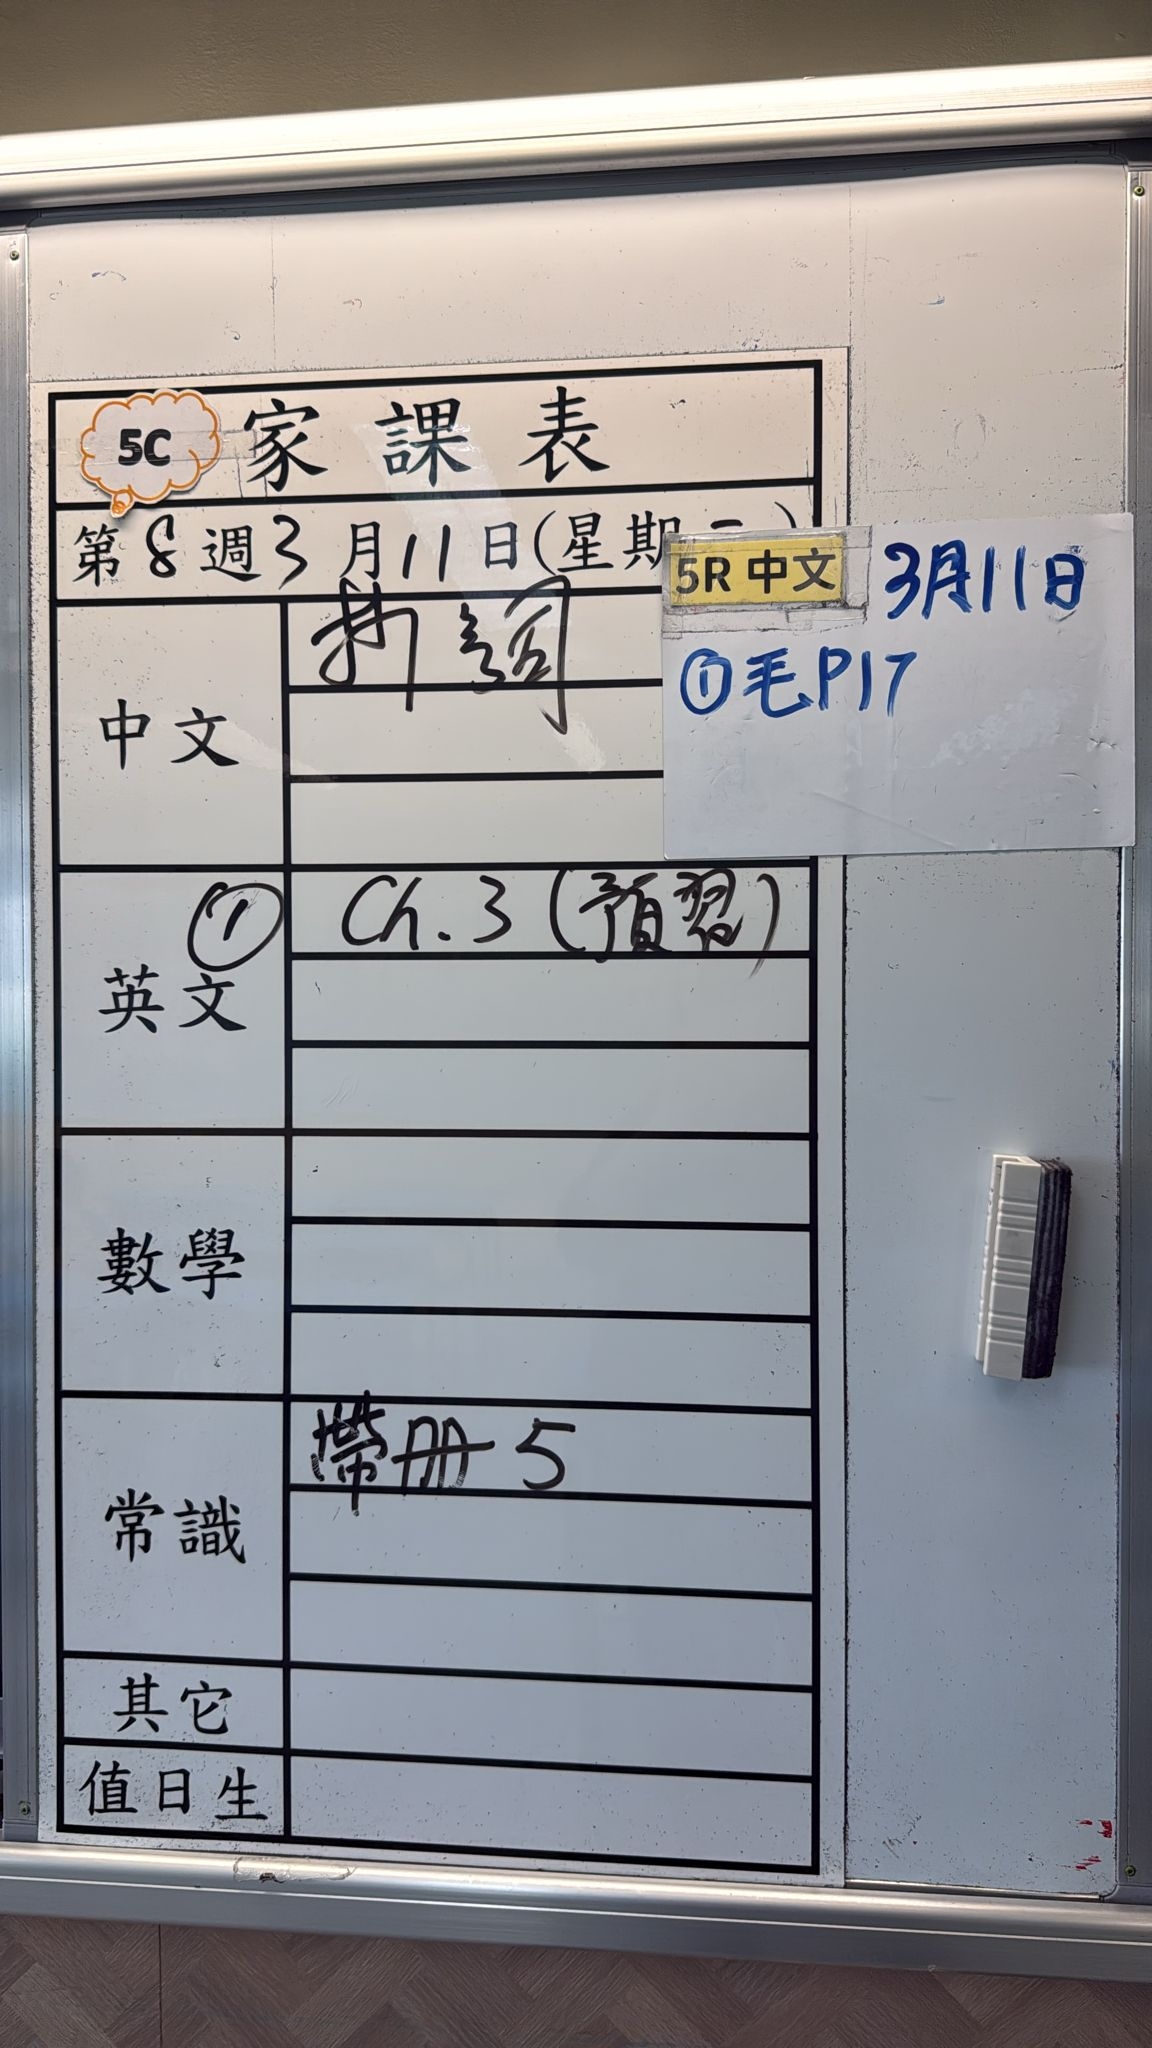 5C 家課表
第8週3月11日(星期二)
5R 中文 3月11日
①毛P17
中文
詞
英文
① Ch.3(預習)
數學
常識
帶冊5
其它
值日生